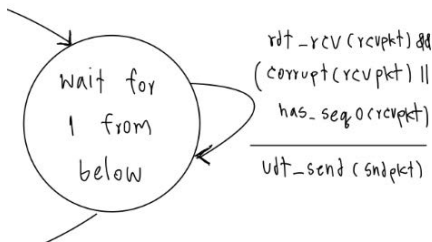 wait for
1 from
below
rdt_rcv(rcvpkt) &&
(corrupt(rcvpkt) ||
has_seq0(rcvpkt)
udt_send(sndpkt)